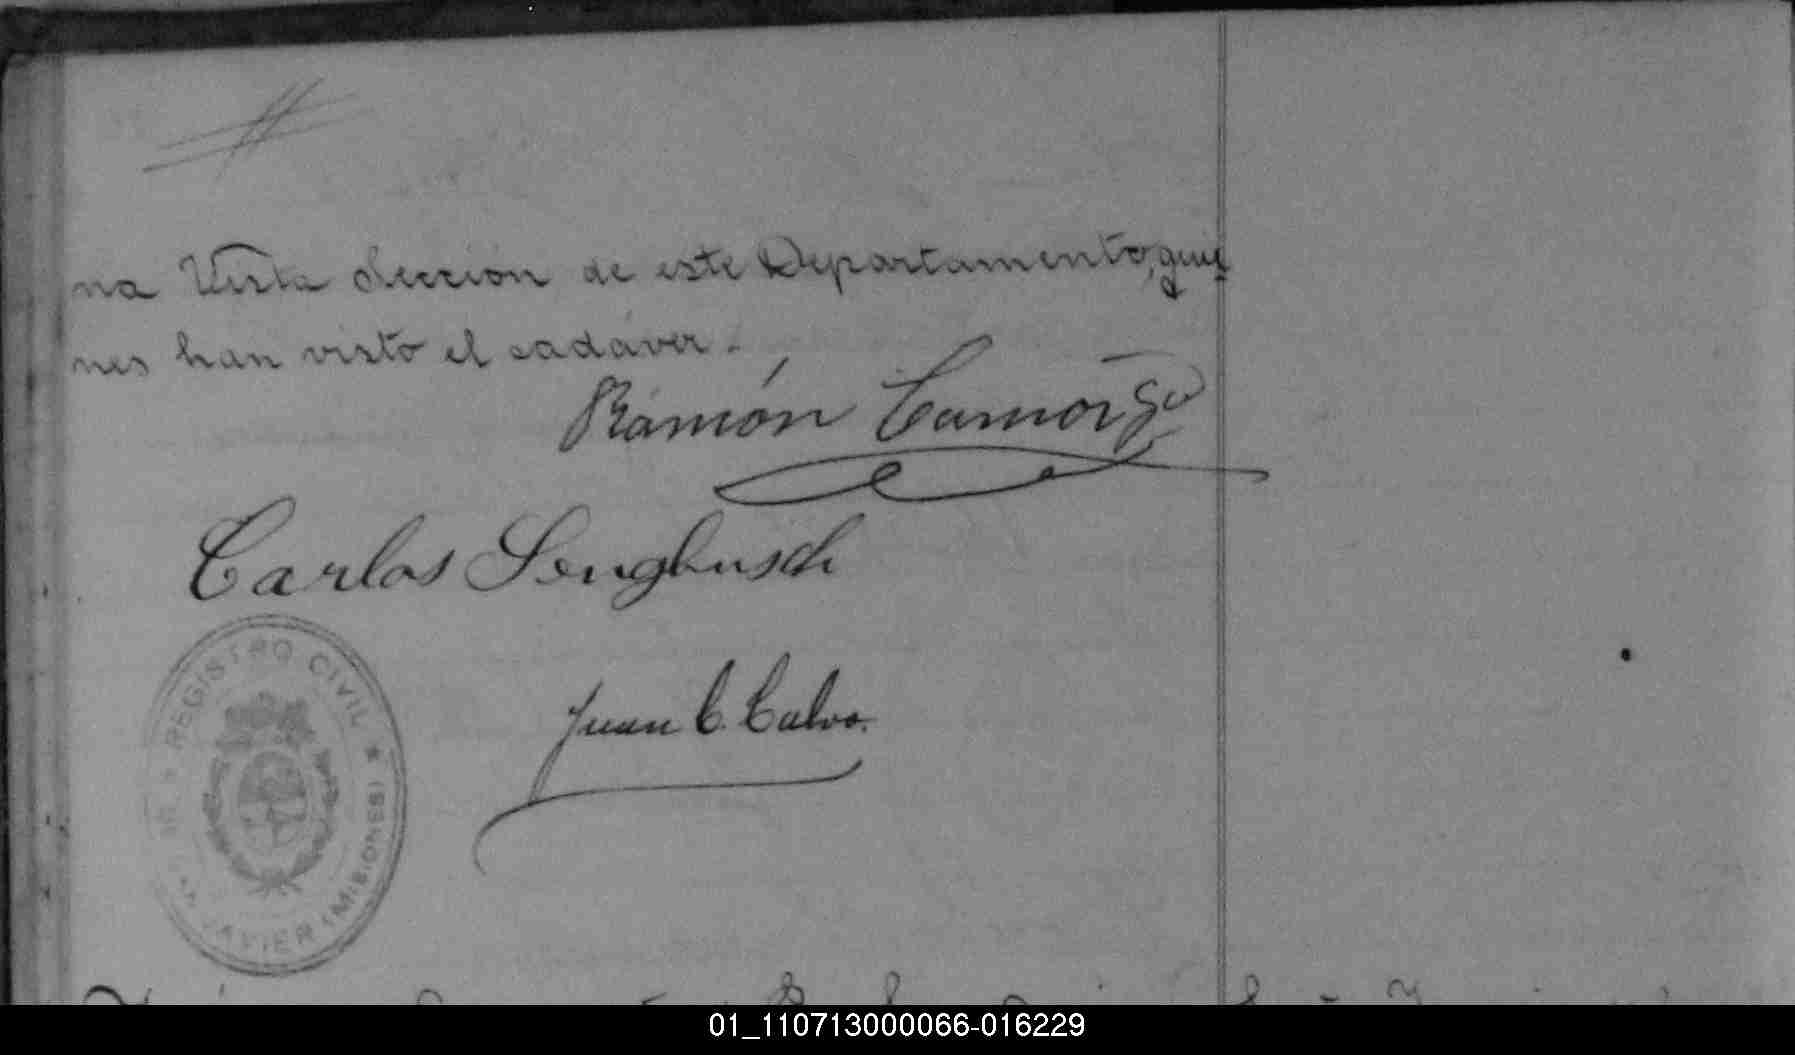 na Vista Sección de este Departamento, quie
nes han visto el cadáver.
Ramón Camorgo
Carlos Sengbusch
Juan C. Calvo.
REGISTRO CIVIL ★ JAVIER (MISIONES)
01_110713000066-016229